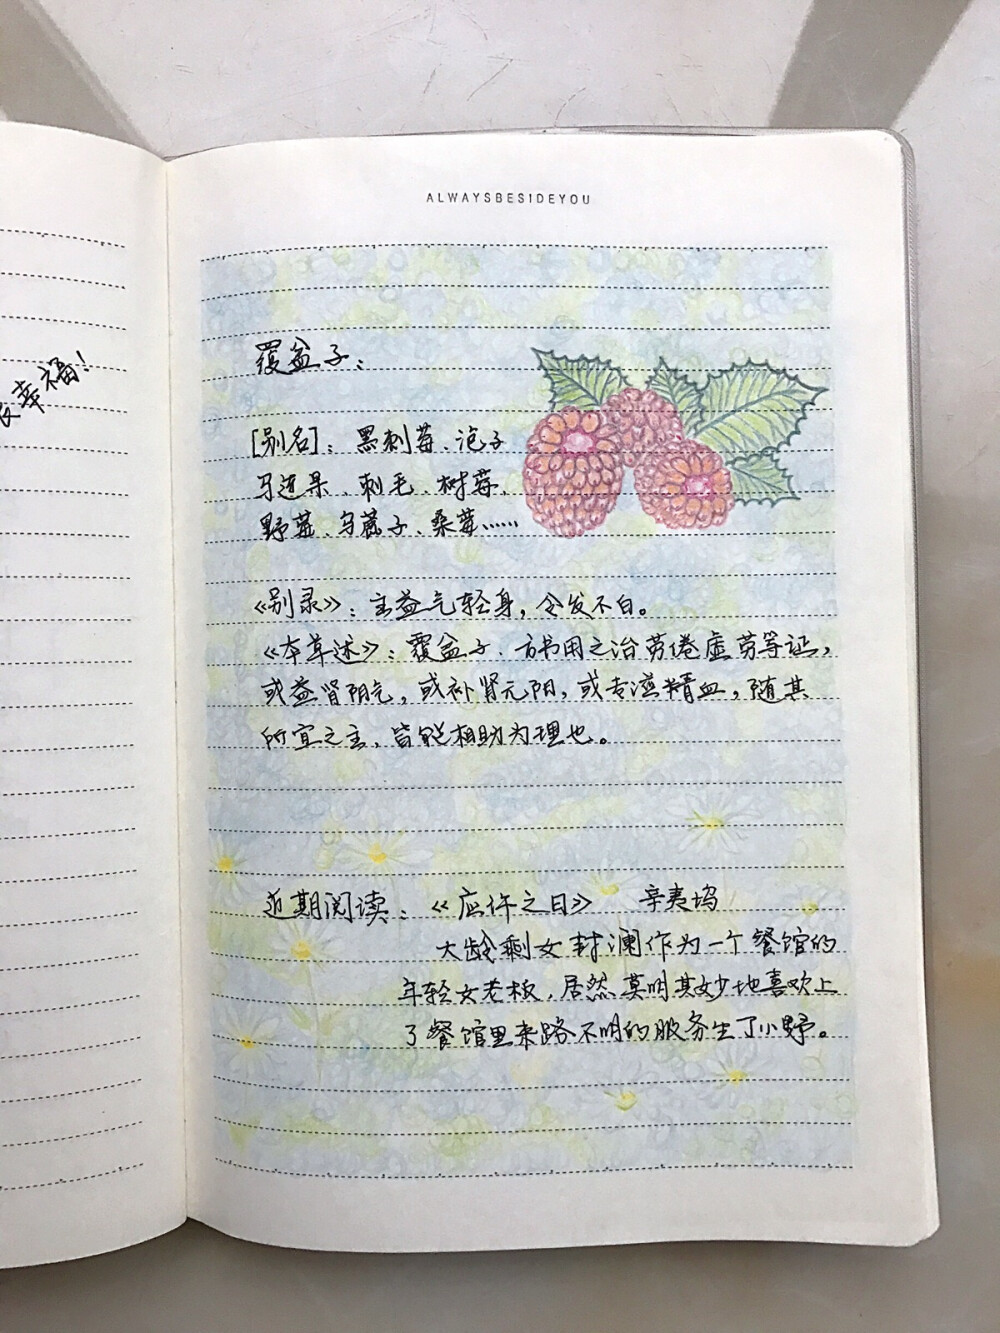 ALWAYSBESIDEYOU
良幸福！
覆盆子：
[别名]：黑刺莓、泡子
马连果、刺毛、树莓、
野莓、乌藨子、桑莓……
《别录》：主益气轻身，令发不白。
《本草述》：覆盆子、方书用之治劳倦虚劳等证，
或益肾阳气，或补肾元阳，或专滋精血，随其
所宜之主，皆能相助为理也。
近期阅读：《应许之日》 辛夷坞
大龄剩女封澜作为一个餐馆的
年轻女老板，居然莫明其妙地喜欢上
了餐馆里来路不明的服务生丁小野。